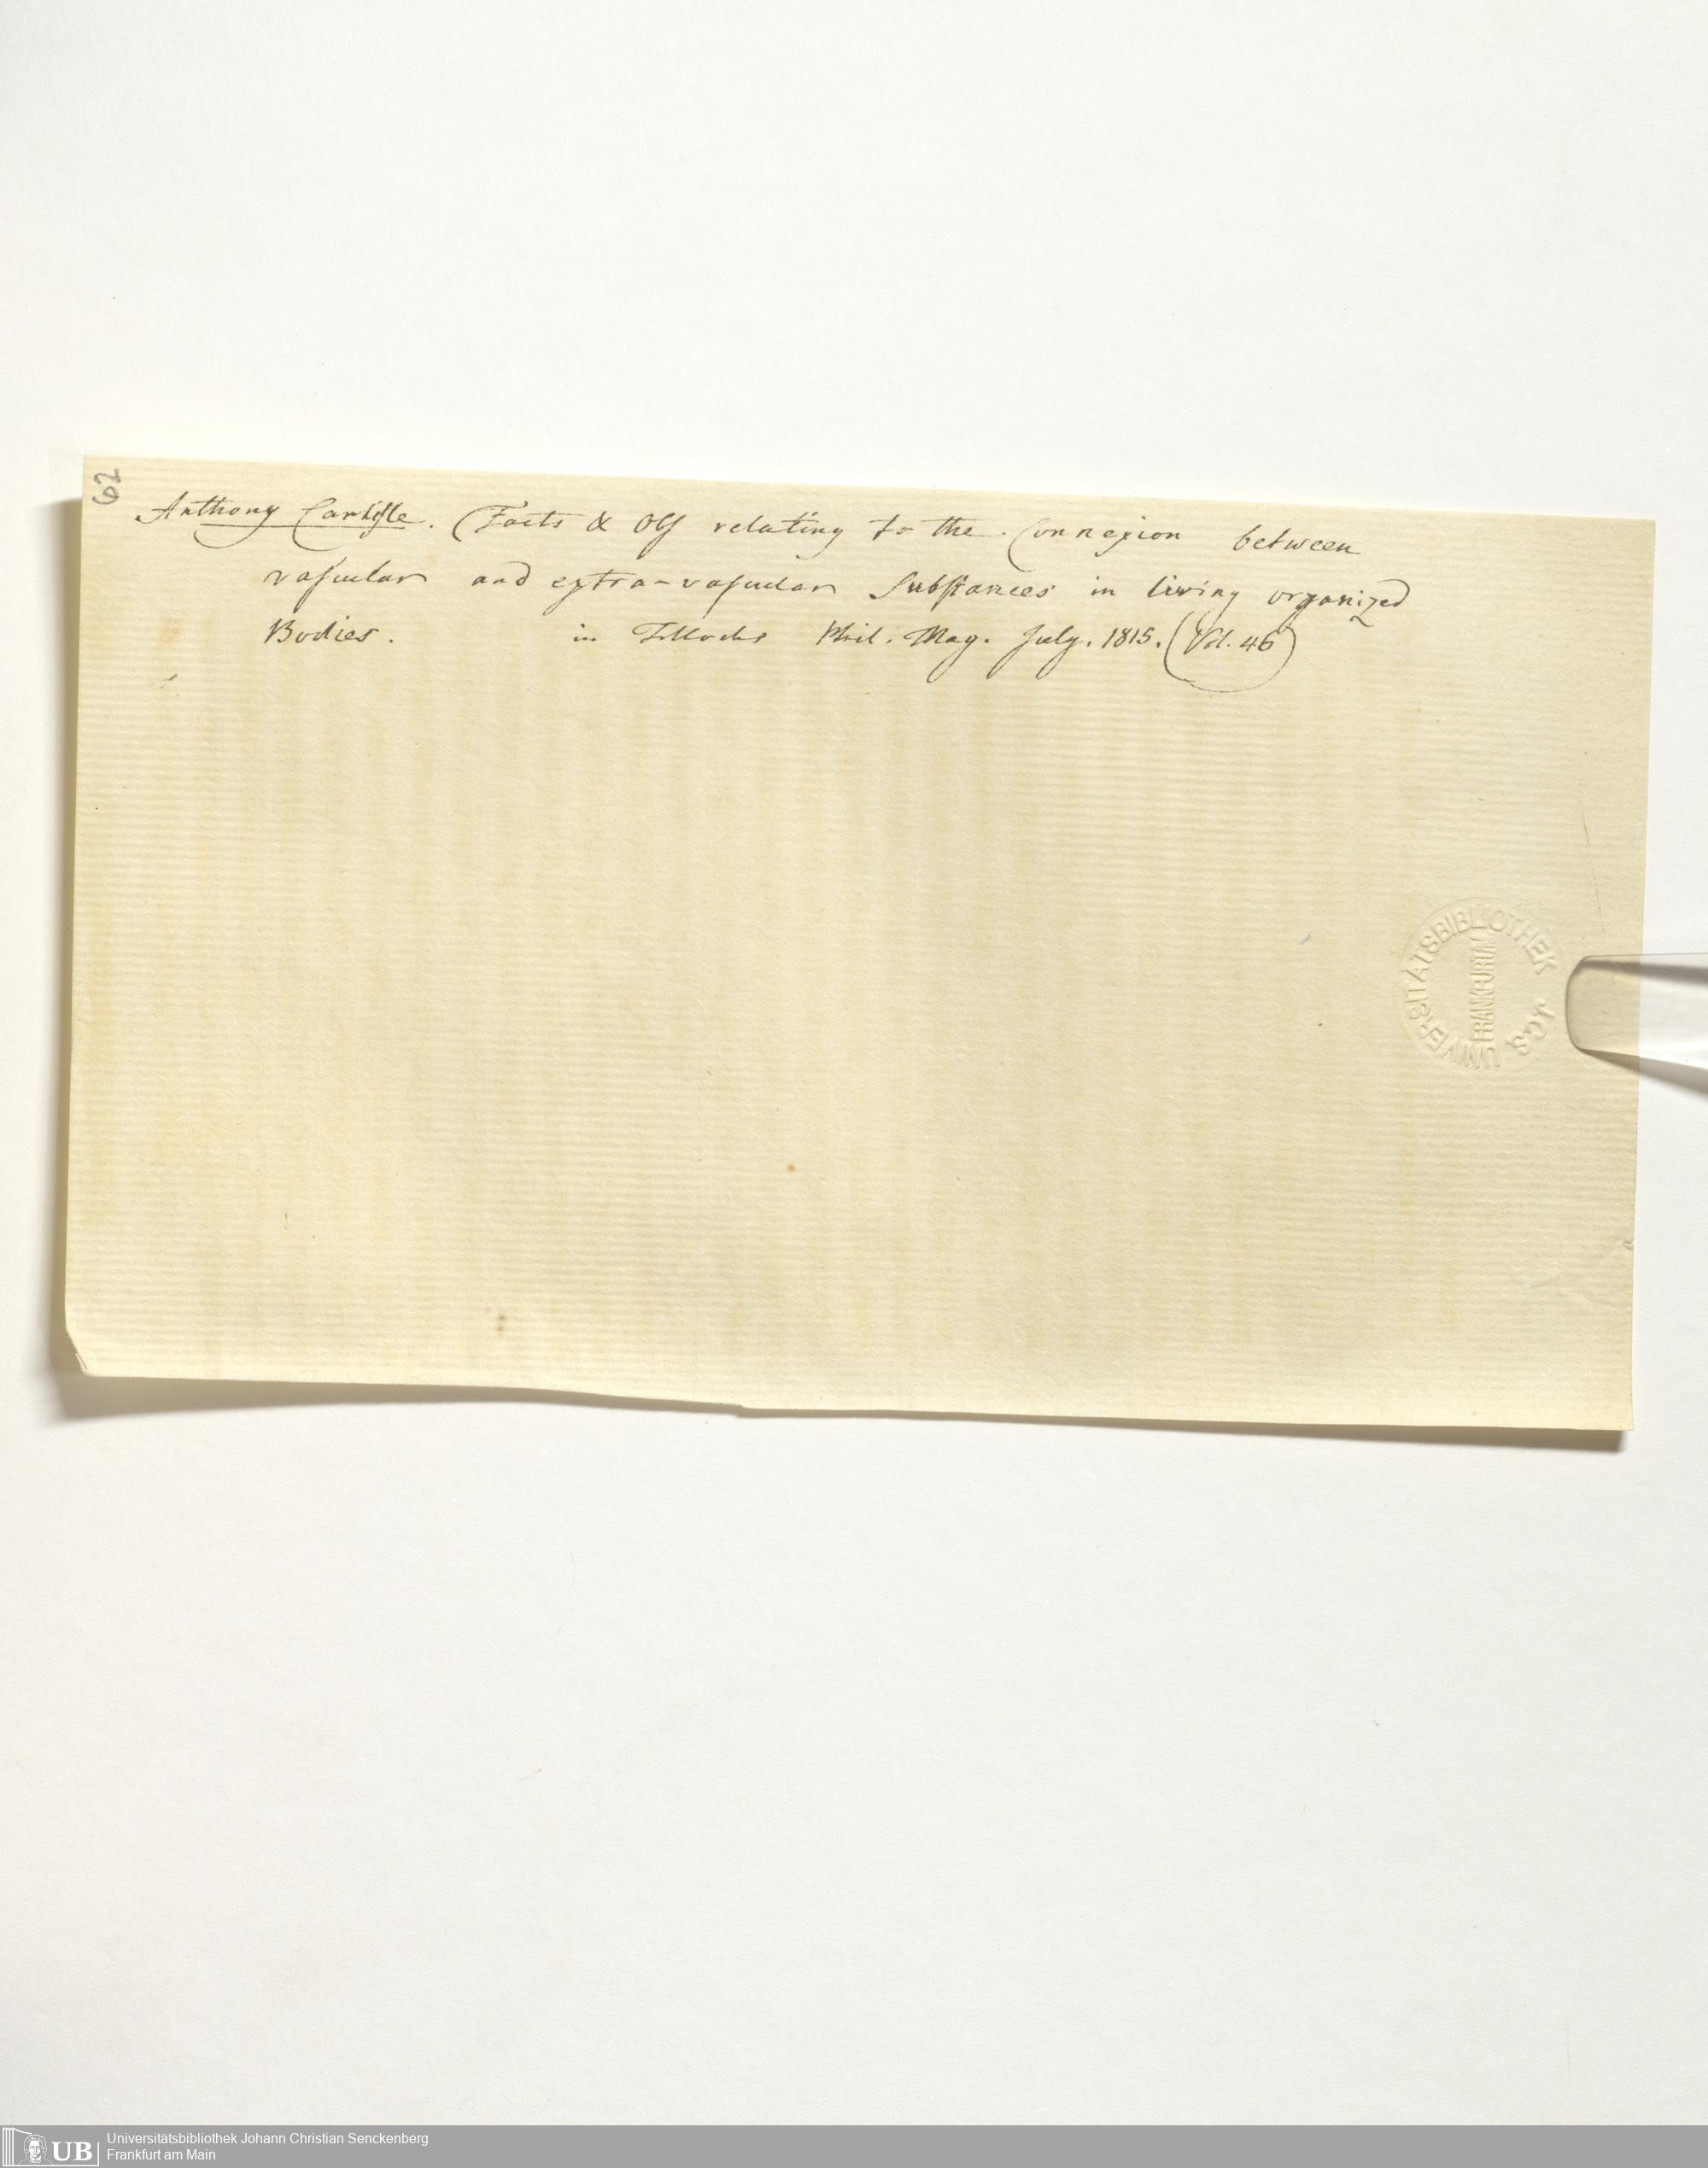 62
Anthony Carlisle. (Facts & Obs relating to the Connexion between
vascular and extra-vascular Substances in living organized
Bodies. in Tillochs Phil. Mag. July. 1815. (Vol. 46)
UNIVERSITÄTSBIBLIOTHEK
FRANKFURT/M
JCS
UB
Universitätsbibliothek Johann Christian Senckenberg
Frankfurt am Main